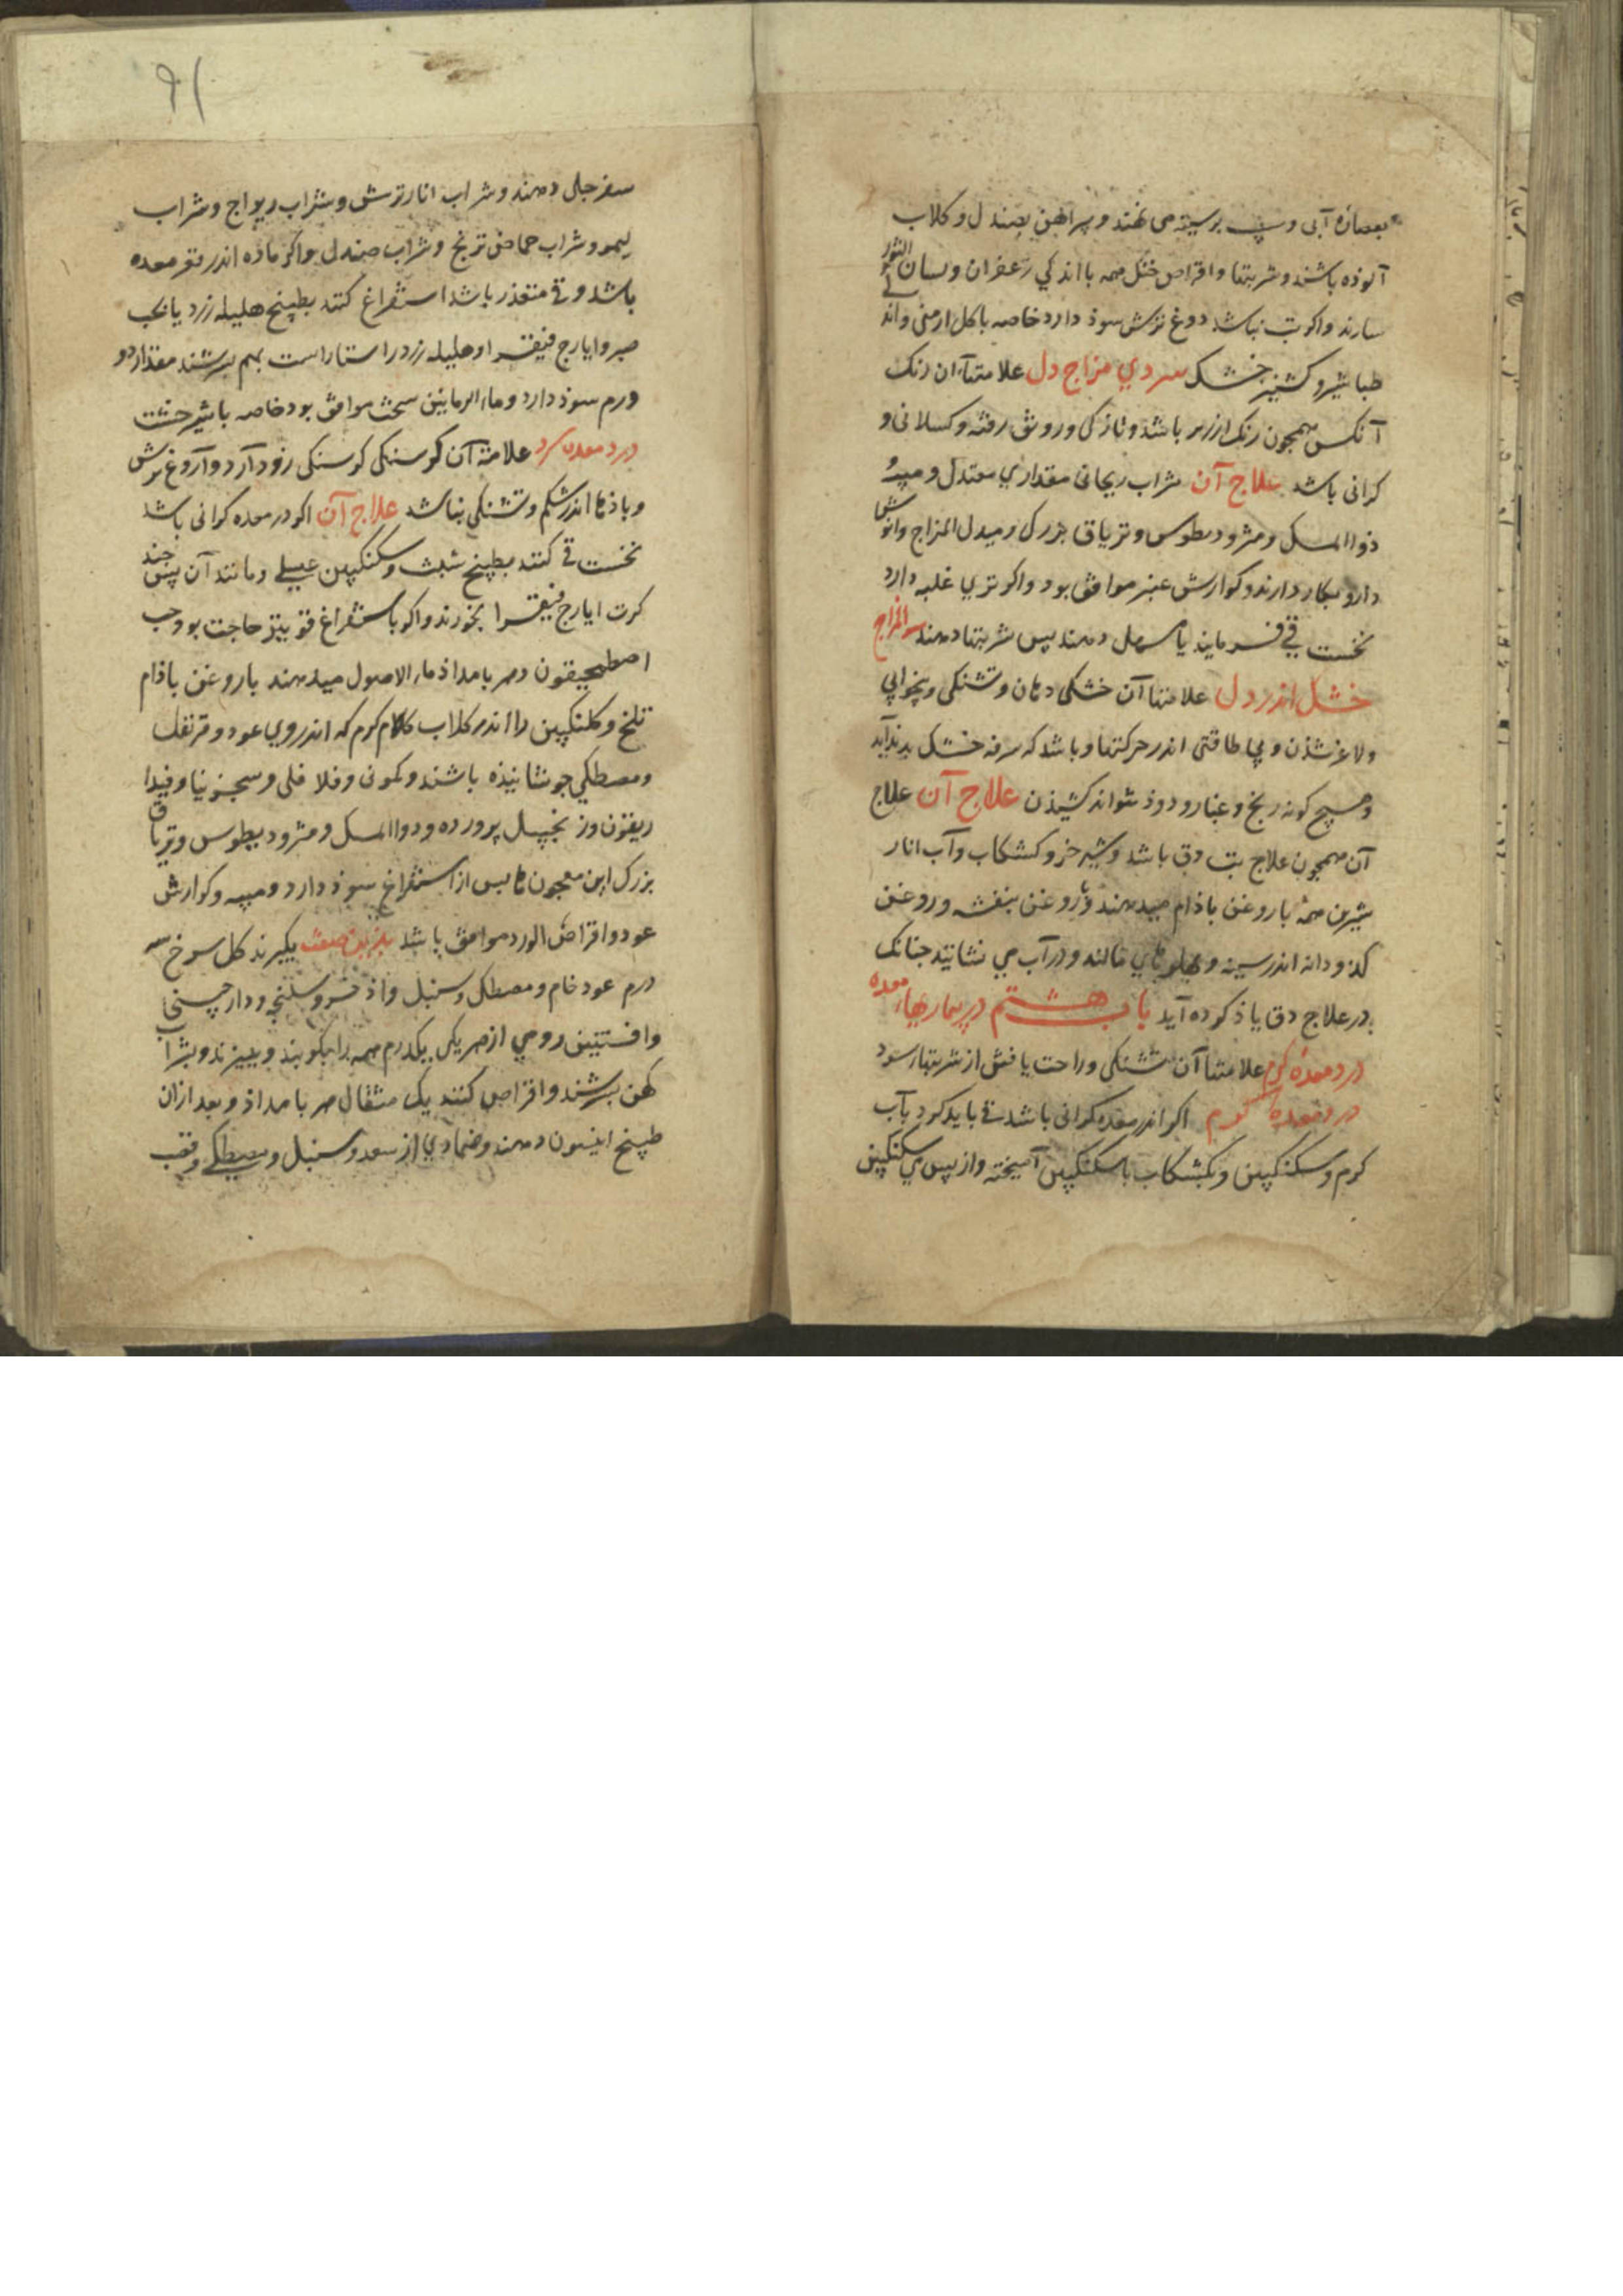 بعصارهٔ آبی و سیب بر سینه می نهند و پیراهن بصندل و کلاب
آلوذه باشند و شربتها و اقراص خنک همه با اندکی زعفران و لسان الثور
سازند و اکر تب نباشد دوغ ترش سوذ دارد خاصه با کل ارمنی و
طباشیر و کشنیز خشک سردی مزاج دل علامتهاآن رنک
آنکس همجون رنک ارزیز باشد و تازکی و رونق رفته و کسلانی و
کرانی باشد علاج آن شراب ریحانی مقداری معتدل و میبه و
ذواالمسک و مثرودیطوس و تریاق بزرک و مبدل المزاج وانوش
دارو بکار دارند و کوارش عنبر موافق بود و اکر تری غلبه دارد
نخست قی فرمایند یا مسهل دهند پس شربتها دهند سوالمزاج
خشک اندر دل علامتها آن خشکی دهان و تشنکی و بیخوابی
و لاغر شذن و بی طاقتی اندر حرکتها و باشد که سرفه خشک بدیدآید
و هیچ کونه رنج و غبار و دوذ نتواند کشیذن علاج آن علاج
آن همجون علاج تب دق باشد و شیر خر و کشکاب و آب انار
شیرین همه با روغن باذام میدهند و روغن بنفشه و روغن
کدو دانه اندر سینه و بهلوهای مالند و در آب می نشانند جنانک
در علاج دق یاذ کرده آید باب هشتم در بیماریها معده
درد معده کرم علامتها آن تشنکی و راحت یافتن از شربتها سرد
درد معده کرم اکر اندر معده کرانی باشد قی باید کرد بآب
کرم و سکنکبین و بکشکاب با سکنکبین آمیخته و از پس می سکنکبین
۹۱
سفرجلی دهند و شراب انار ترش و شراب ریواج و شراب
لیمو و شراب حماض ترنج و شراب صندل و اکر ماده اندر قعر معده
باشد و قی متعذر باشد استفراغ کنند بطبیخ هلیله زرد یا بحب
صبر و ایارج فیقرا و هلیله زرد راستاراست بهم بسرشند مقدار دو
درم سوذ دارد و ماء الرمانین سخت موافق بود خاصه با شیرخشت
درد معده سرد علامة آن کرسنکی کرسنکی زود آرد و آروغ ترش
و باذها اندر شکم و تشنکی نباشد علاج آن اکر در معده کرانی باشد
نخست قی کنند بطبیخ شبث و سکنکبین عسلی و مانند آن پس جند
کرت ایارج فیقرا بخورند و اکر باستفراغ قوی تر حاجت بود حب
اصطمحیقون و هر بامداذ ماء الاصول میدهند با روغن باذام
تلخ و کلنکبین را اندر کلاب کرم که اندر وی عود و قرنفل
و مصطکی جوشانیذه باشند و کمونی و فلافلی و سجزنیا و فیدا
ریقون و زنجبیل پرورده و دواالمسک و مثرودیطوس و تریاق
بزرک این معجون ها پس از استفراغ سوذ دارد و میبه و کوارش
عود و اقراص الورد موافق باشد بدین صفت بکیرند کل سرخ سه
درم عود خام و مصطکی و سنبل و اذخر و سلیخه و دارچینی
و افسنتین رومی از هر یکی یکدرم همه را بکوبند و ببیزند و بشراب
کهن بسرشند و اقراص کنند یک مثقال هر بامداذ و بعد ازان
طبیخ انیسون دهند و ضمادی از سعد و سنبل و مصطکی و قصب